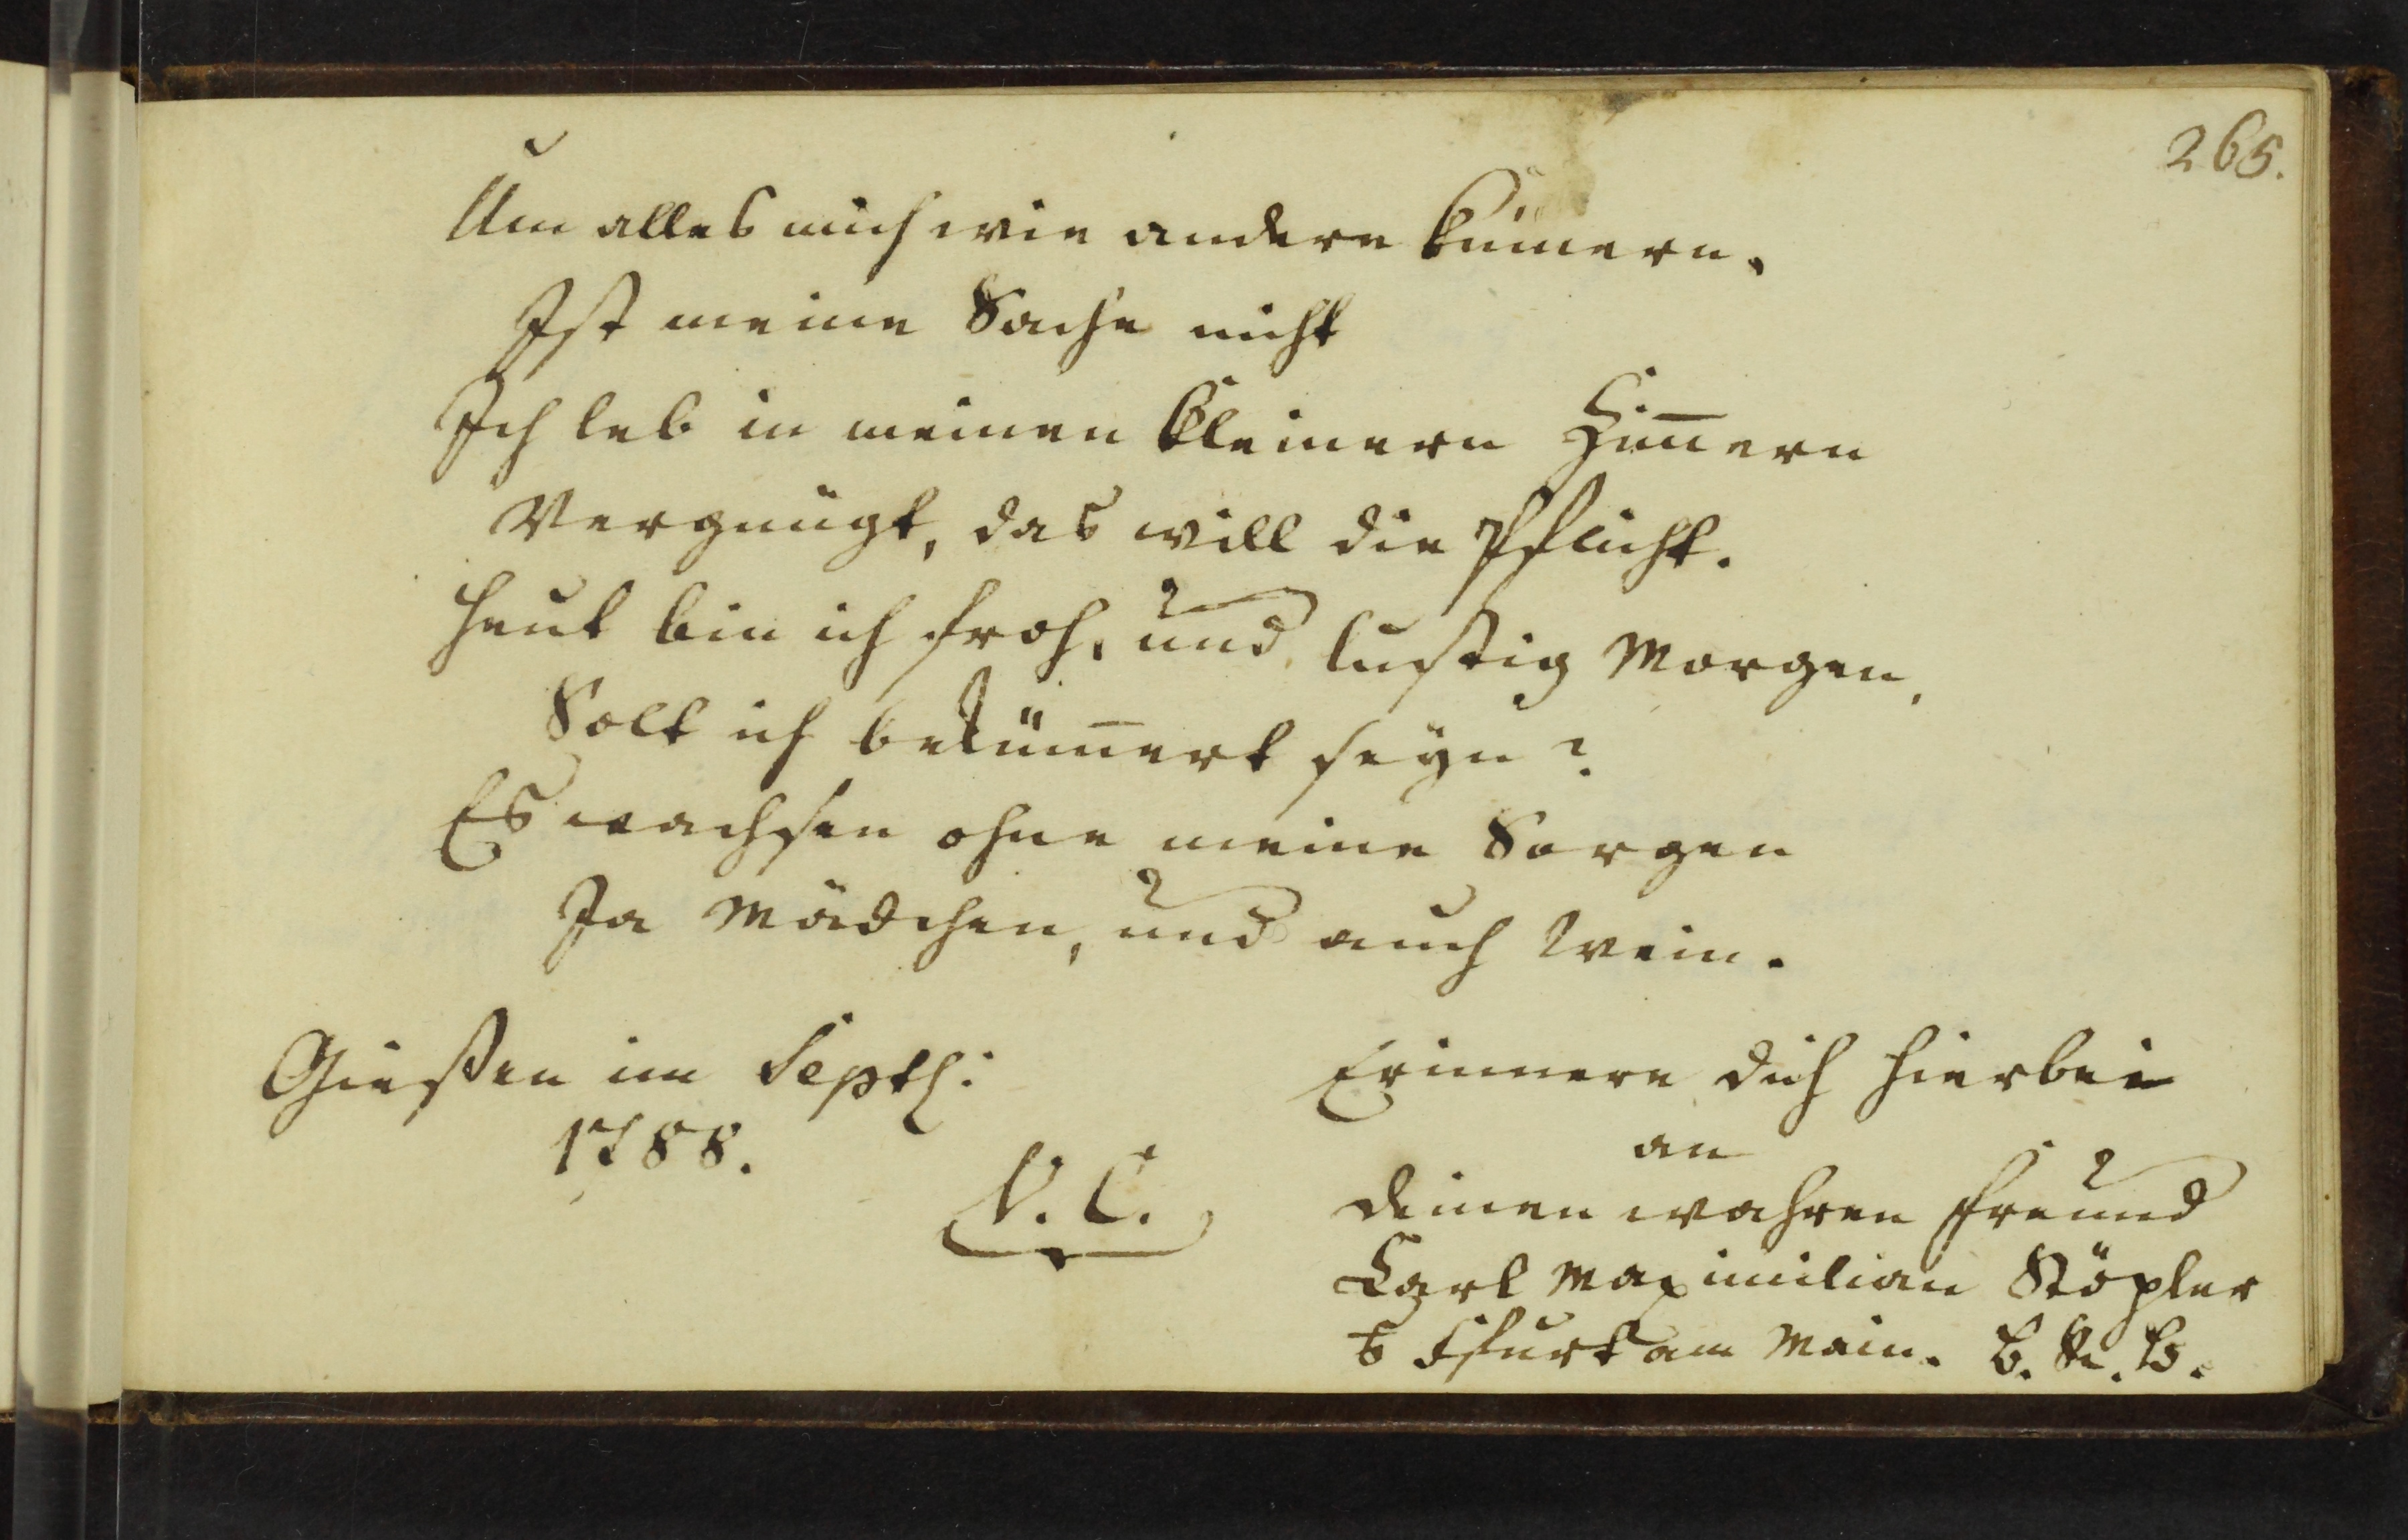 265.
Um alles mich wie andere kümern,
Ist meine Sache nicht
Ich leb in meinen kleinern Zim̄ern
Vergnügt, das will die Pflicht.
Heut bin ich froh, und lustig Morgen,
Solt ich beküm̄ert seyn?
Es wachsen ohne meine Sorgen
Ja Mädchen, und auch Wein.
Giesen im Septh:
1788.
V. C.
Erinnere dich hierbei
an
deinen wahren Freund
Carl Maximilian Stöpler
Ffurt am Main.